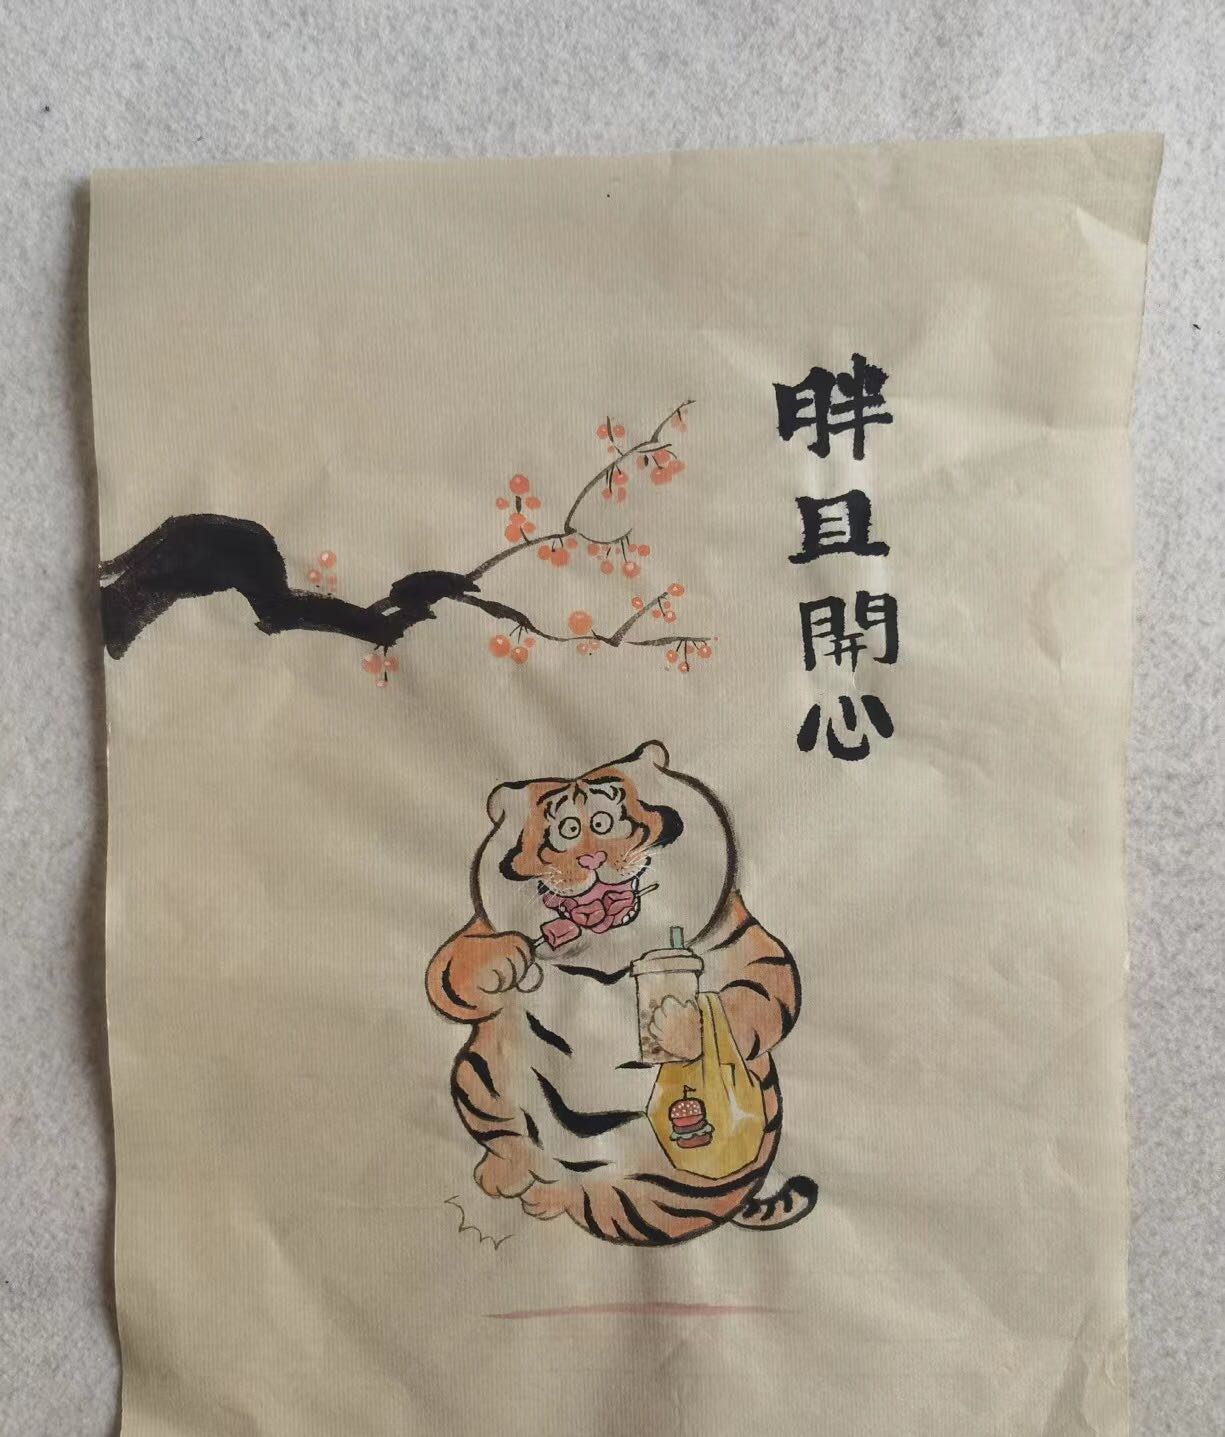 胖且開心